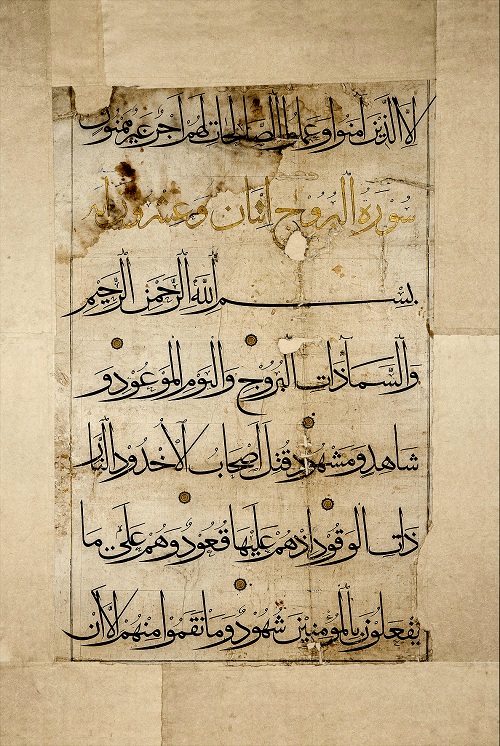 إلا الذين آمنوا وعملوا الصالحات لهم أجر غير ممنون
سورة البروج اثنان وعشرون آية
بسم الله الرحمن الرحيم
والسماء ذات البروج واليوم الموعود و
شاهد ومشهود قتل أصحاب الأخدود النار
ذات الوقود إذ هم عليها قعود وهم على ما
يفعلون بالمؤمنين شهود وما نقموا منهم إلا أن